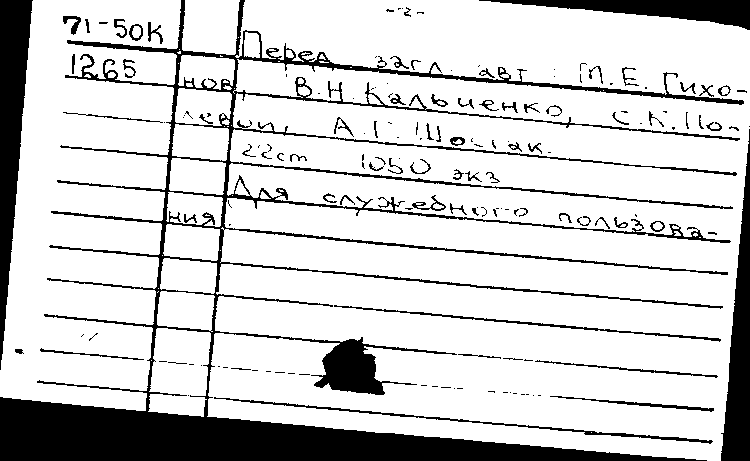 -2-
71-50К
1265
Перед загл. авт.: М.Е. Тихо-
нов, В.Н. Кальченко, С.К. По-
левой, А.Г. Шостак.
22см 1050 экз
Для служебного пользова-
ния.